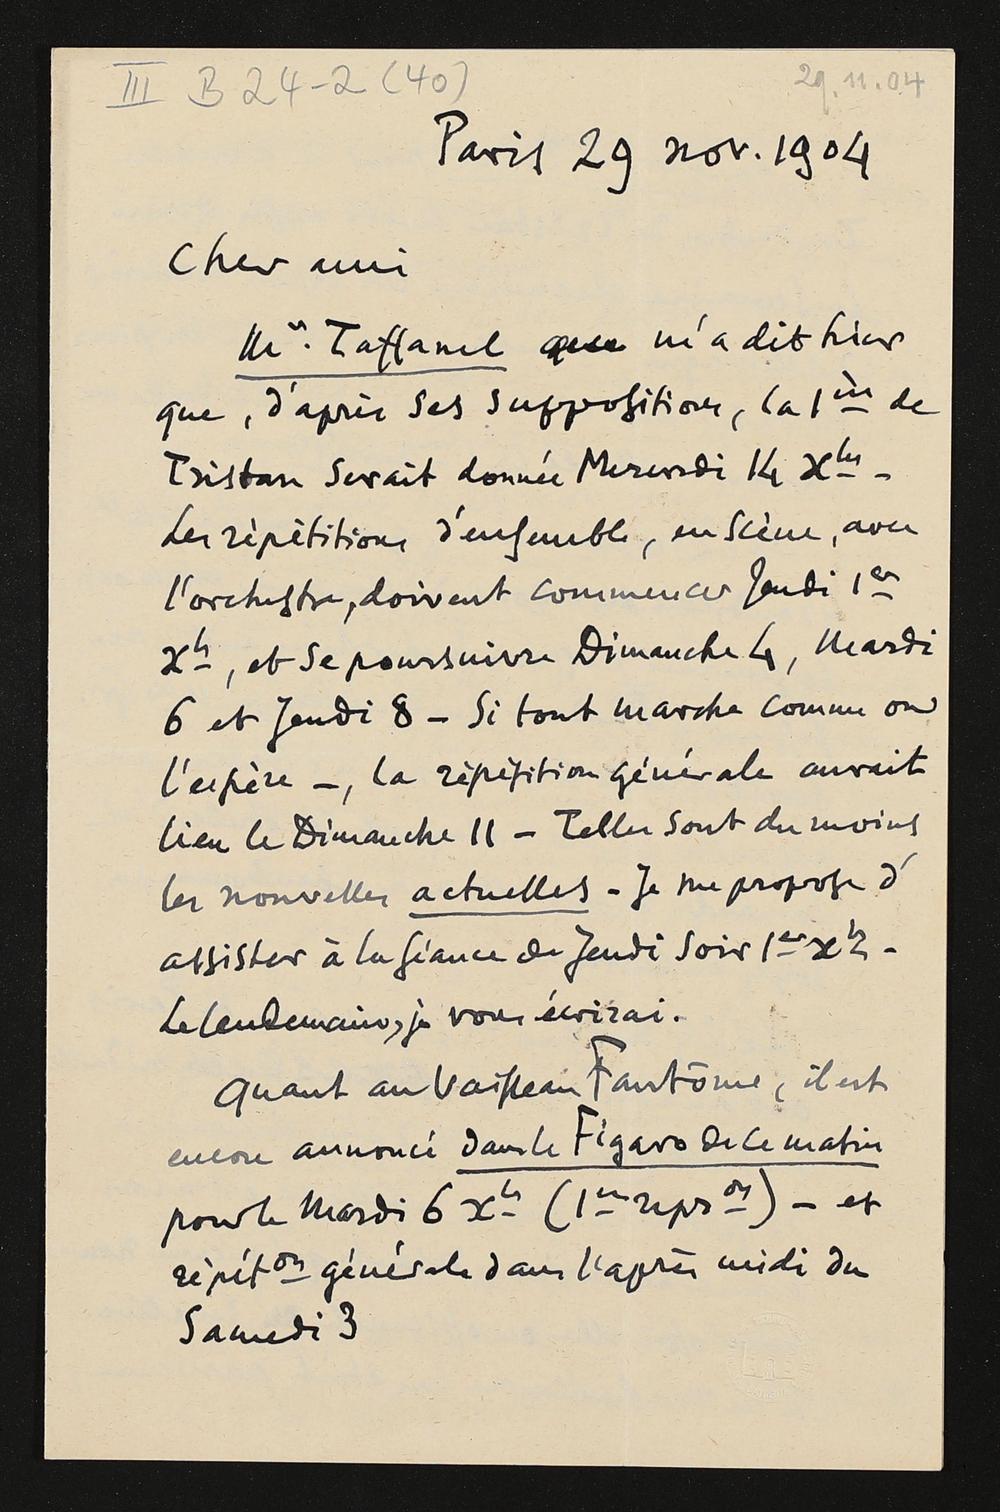 III B 24-2 (40)
29.11.04
Paris 29 nov. 1904
Cher ami
Mr. Taffanel que m'a dit hier
que, d'après ses suppositions, la 1ère de
Tristan serait donnée Mercredi 14 Xbre -
Les répétitions d'ensemble, en scène, avec
l'orchestre, doivent commencer Jeudi 1er
Xbre, et se poursuivre Dimanche 4, Mardi
6 et Jeudi 8 - Si tout marche comme on
l'espère -, la répétition générale aurait
lieu le Dimanche 11 - Telles sont du moins
les nouvelles actuelles - Je me propose d'
assister à la séance de Jeudi soir 1er Xbre -
Le lendemain, je vous écrirai.
Quant au Vaisseau Fantôme, il est
encore annoncé dans le Figaro de ce matin
pour le Mardi 6 Xbre (1ère reprson) - et
répéton générale dans l'après midi du
Samedi 3